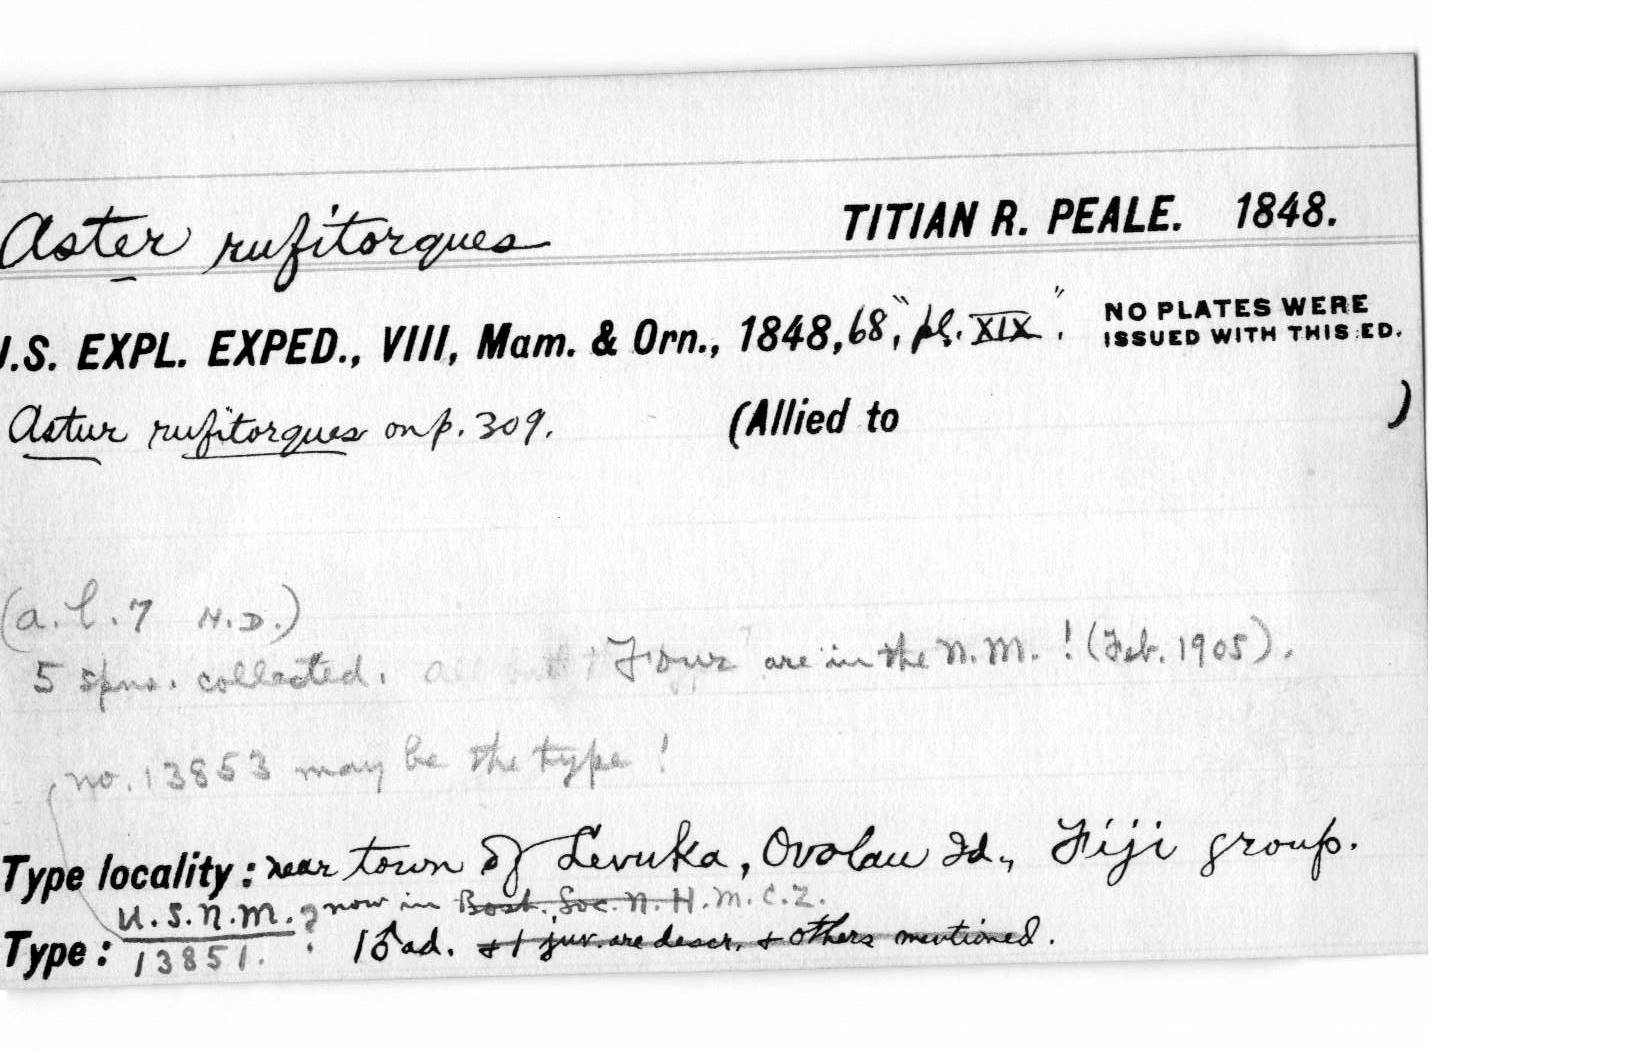 Aster rufitorques TITIAN R. PEALE. 1848.
U.S. EXPL. EXPED., VIII, Mam. & Orn., 1848, 68, "pl. XIX". NO PLATES WERE
ISSUED WITH THIS ED.
Astur rufitorques on p. 309. (Allied to )
(a. l. 7 N.D.)
5 spns. collected. All but 1 "Four" are in the N.M.! (Feb. 1905).
no. 13853 may be the type!
Type locality: near town of Levuka, Ovolau Id., Fiji group.
U.S.N.M.? now in Bost. Soc. N. H. M.C.Z.
Type: 13851. 1♂ad. & 1 juv. are descr. & others mentioned.